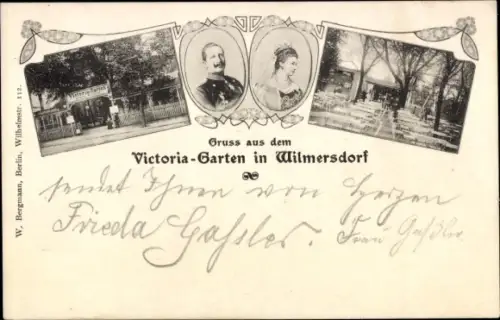 Gruss aus dem
Victoria-Garten in Wilmersdorf
sendet Ihnen von Herzen
Frieda Gassler. Frau Gaßler
W. Bergmann, Berlin, Wilhelmstr. 112.